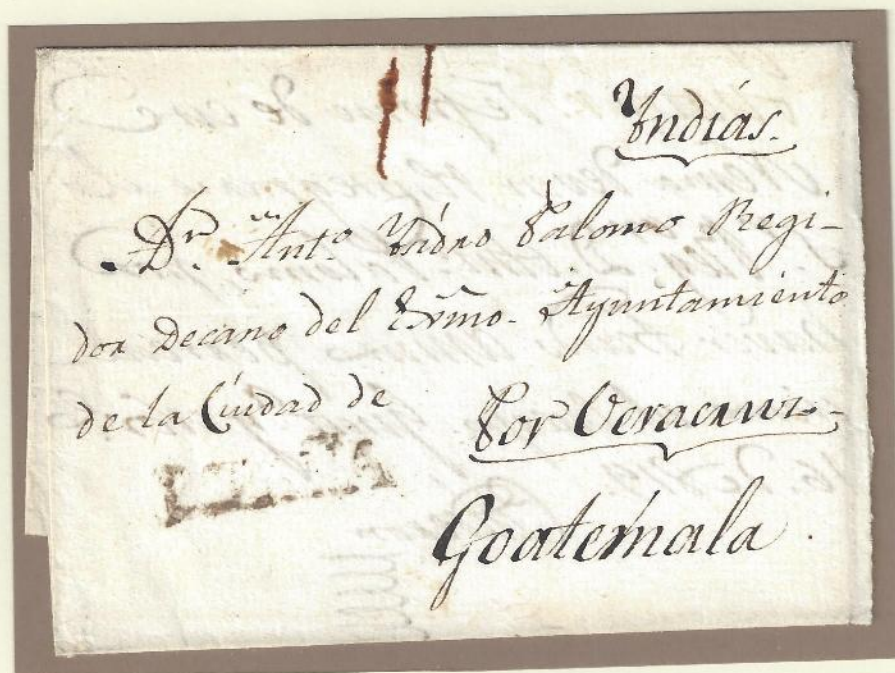 Indias.
Dr. Anto. Ysidro Palomo Regi-
dor Decano del Exmo. Ayuntamiento
de la Ciudad de
Por Veracruz.
Goatemala.